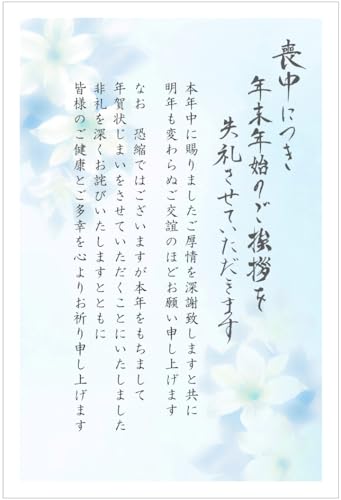 喪中につき
年末年始のご挨拶を
失礼させていただきます
本年中に賜りましたご厚情を深謝致しますと共に
明年も変わらぬご交誼のほどお願い申し上げます
なお　恐縮ではございますが本年をもちまして
年賀状じまいをさせていただくことにいたしました
非礼を深くお詫びいたしますとともに
皆様のご健康とご多幸を心よりお祈り申し上げます